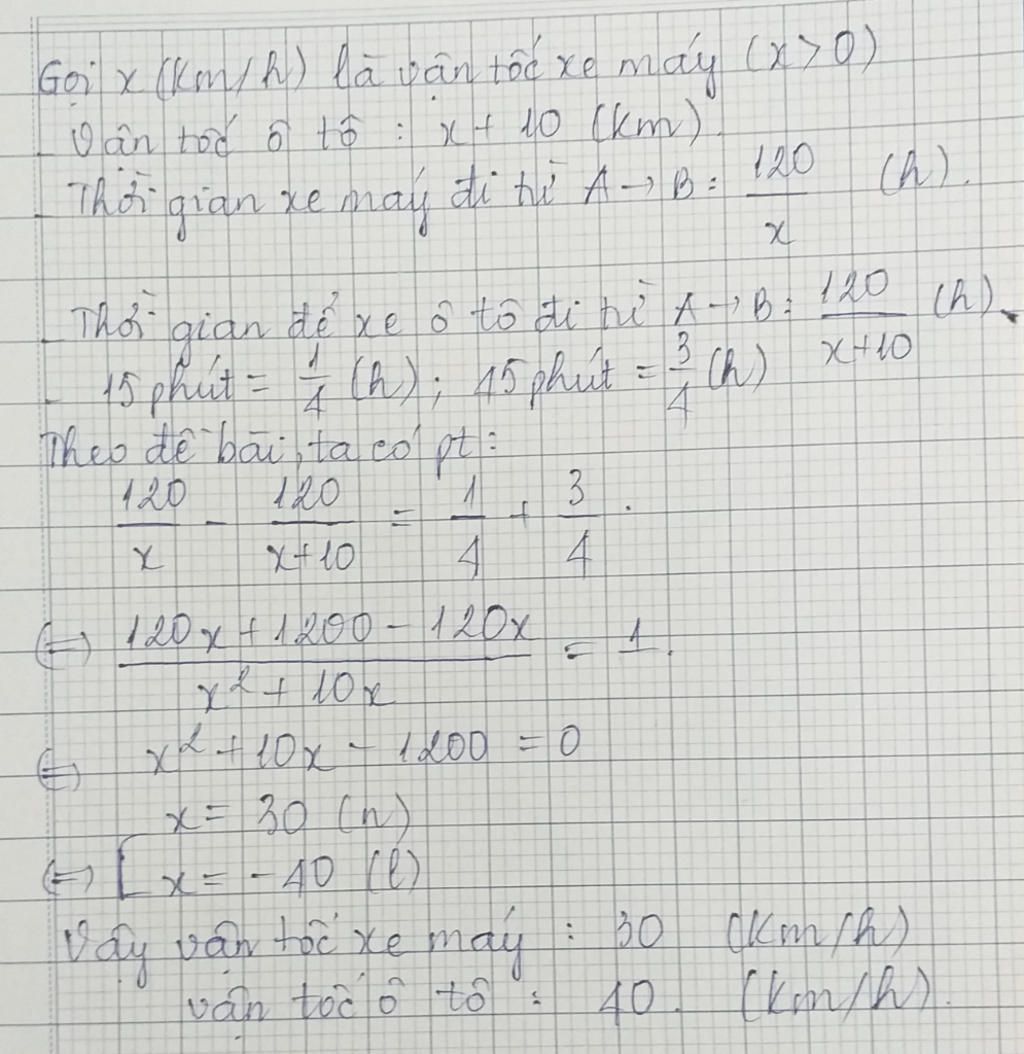 Gọi x (km/h) là vận tốc xe máy (x>0)
- Vận tốc ô tô : x + 10 (km).
- Thời gian xe máy đi từ A → B : 120/x (h).
- Thời gian để xe ô tô đi từ A → B : 120/(x+10) (h).
- 15 phút = 1/4 (h) ; 45 phút = 3/4 (h)
Theo đề bài, ta có pt :
120/x - 120/(x+10) = 1/4 + 3/4 .
⇔ (120x + 1200 - 120x)/(x² + 10x) = 1.
⇔ x² + 10x - 1200 = 0
x = 30 (n)
⇔ [ x = -40 (l)
Vậy vận tốc xe máy : 30 (km/h)
vận tốc ô tô : 40. (km/h).